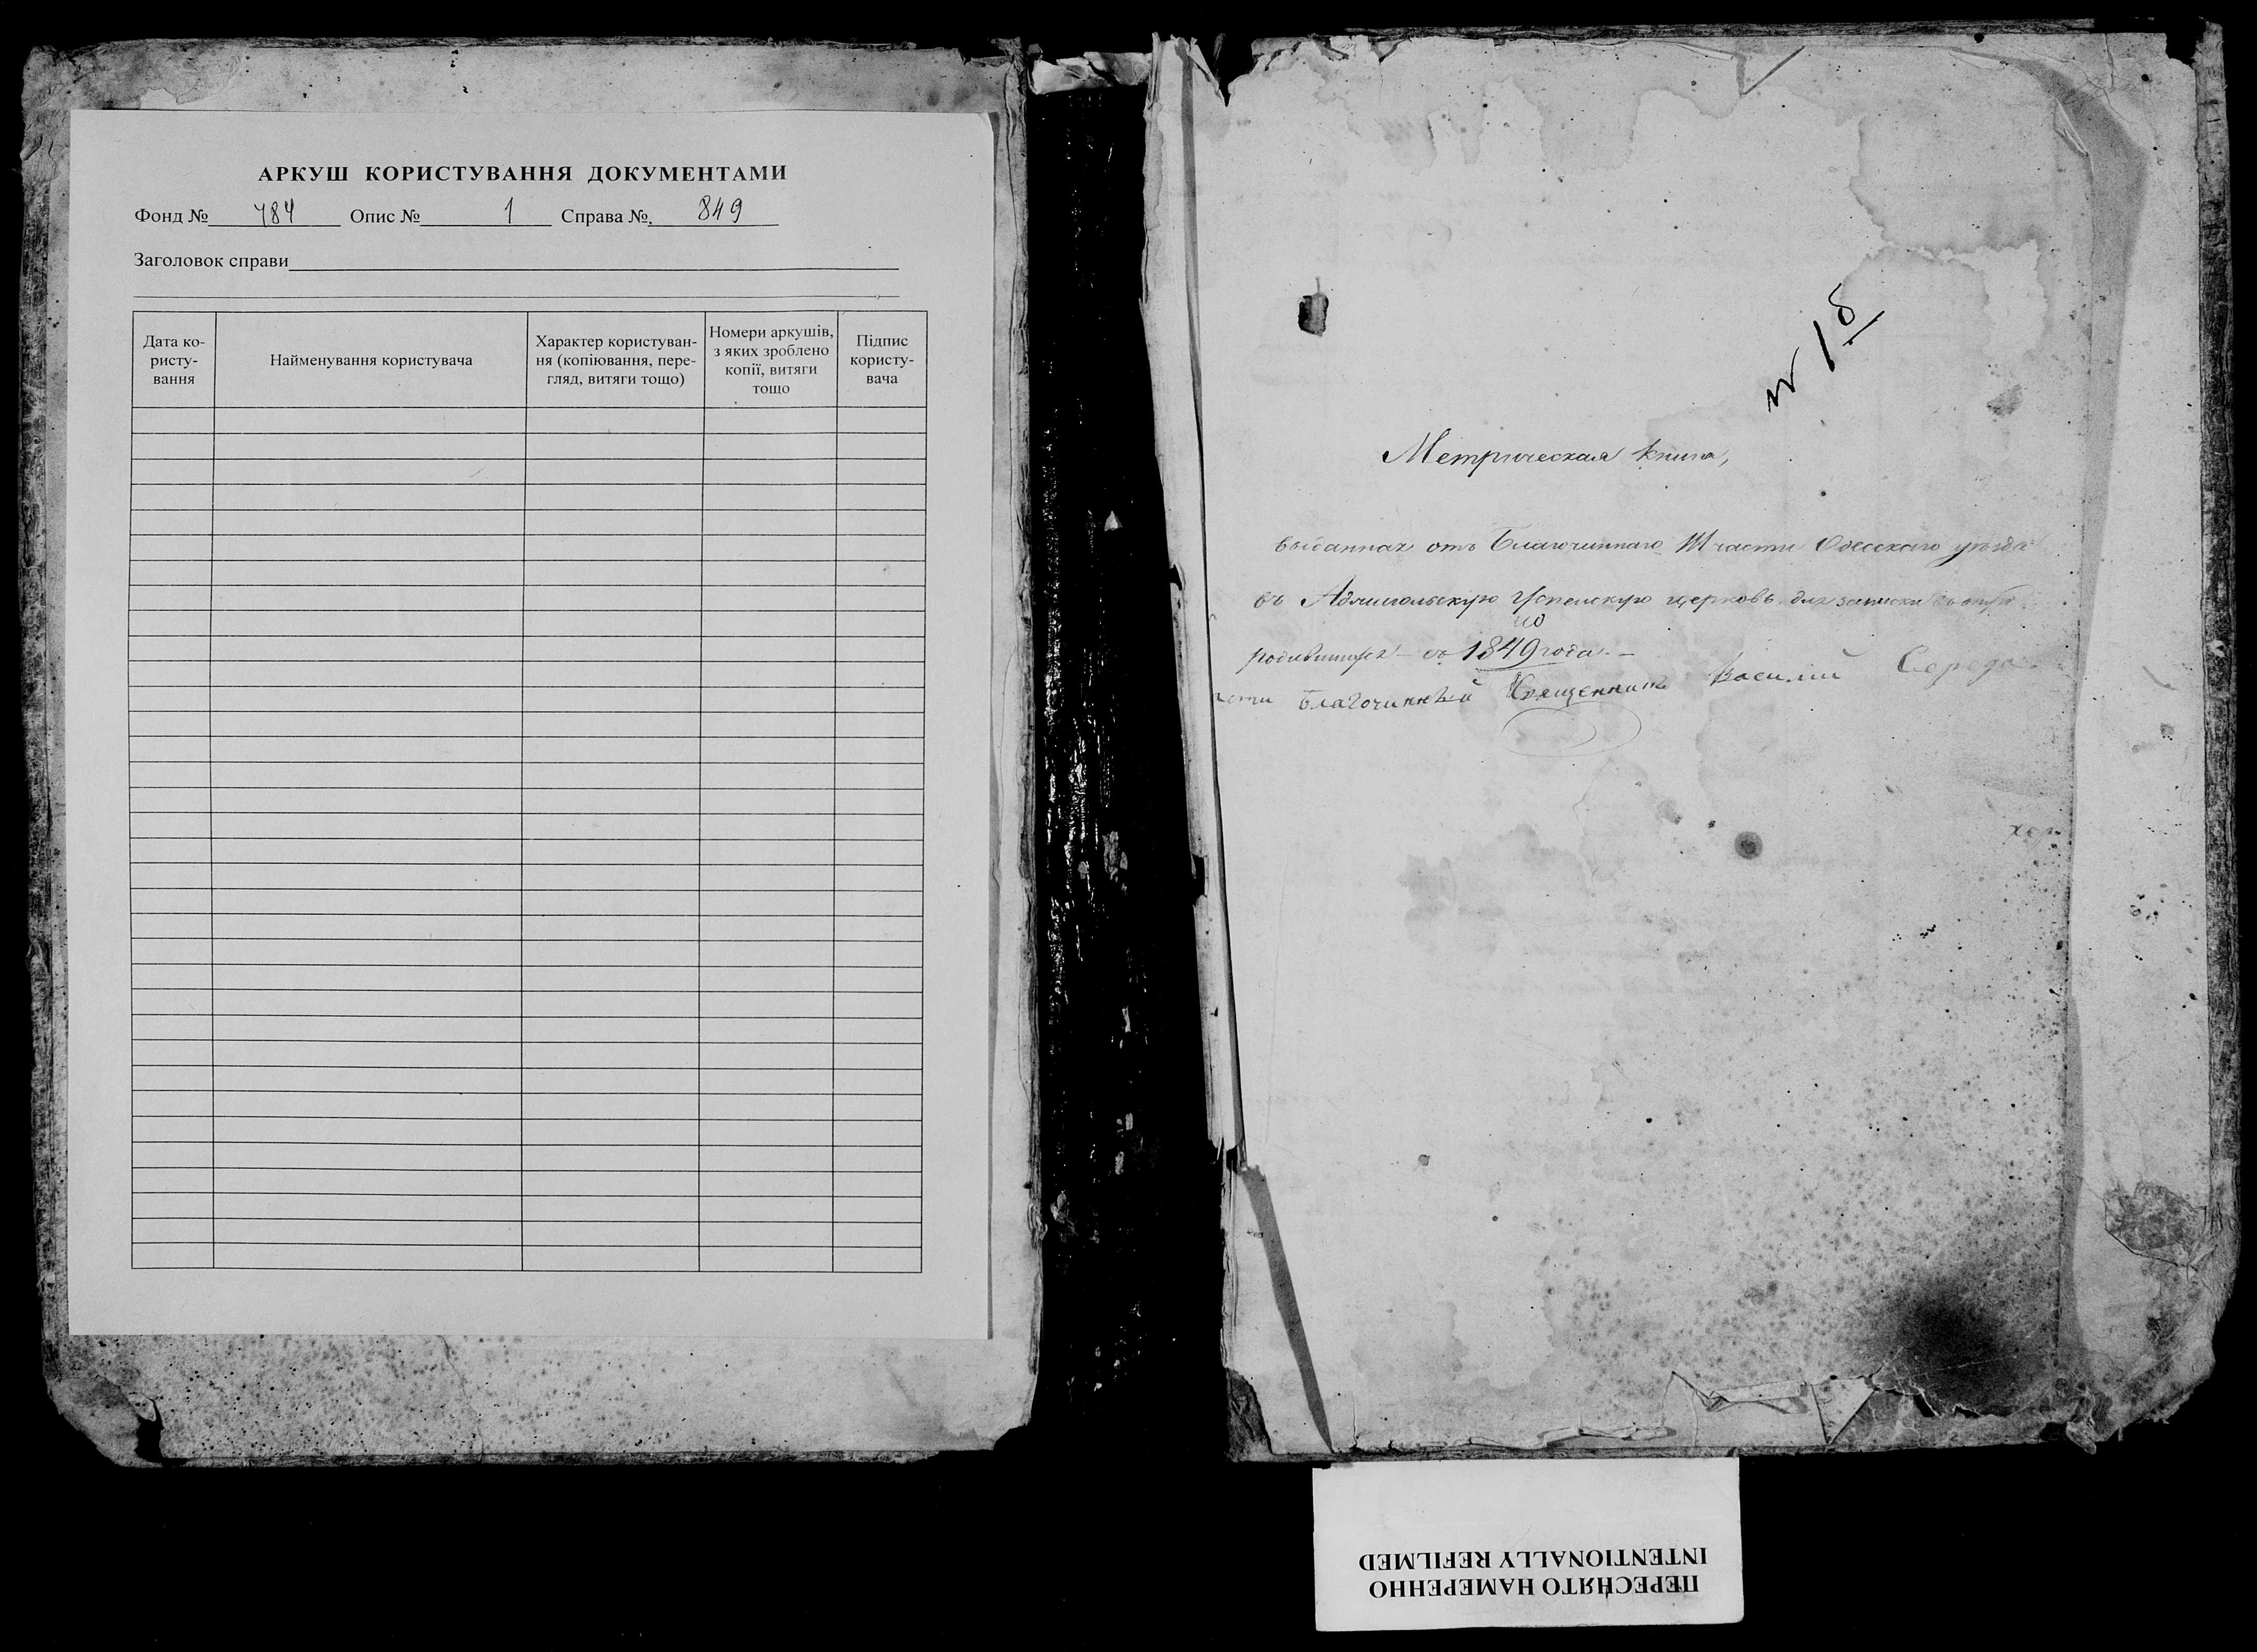 АРКУШ КОРИСТУВАННЯ ДОКУМЕНТАМИ
Фонд № 484 Опис № 1 Справа № 849
Заголовок справи
Дата ко-
ристу-
вання
Найменування користувача
Характер користуван-
ня (копіювання, пере-
гляд, витяги тощо)
Номери аркушів,
з яких зроблено
копії, витяги
тощо
Підпис
користу-
вача
№ 18
Метрическая книга,
выданная отъ Благочиннаго III части Одесскаго уѣзда
въ Аджигольскую Успенскую церковь для записки
родившихся съ 1849 года. —
Благочинный Священникъ Василий Середа
ПЕРЕСНЯТО НАМЕРЕННО
INTENTIONALLY REFILMED